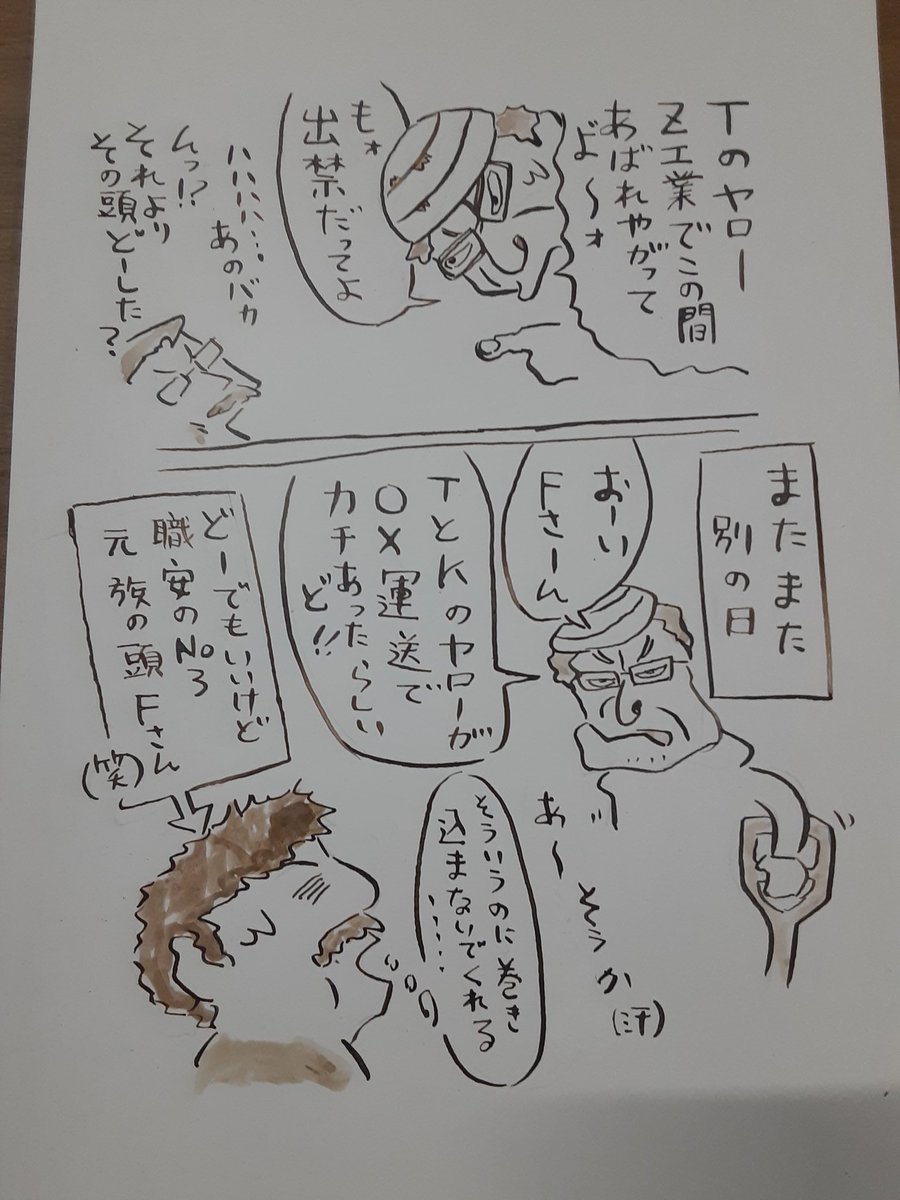 Tのヤロー
Z工業でこの間
あばれやがって
よ〜ォ
もォ
出禁だってよ
ハハハハ…
あのバカ
んっ!?
それより
その頭どーした?
またまた
別の日
おーい
Fさーん
TとKのヤローが
○×運送で
カチあったらしい
ど!!
どーでもいいけど
職安のNo3
元族の頭Fさん
(笑)
あ〜
そうか
(汗)
そういうのに巻き
込まないでくれる
……